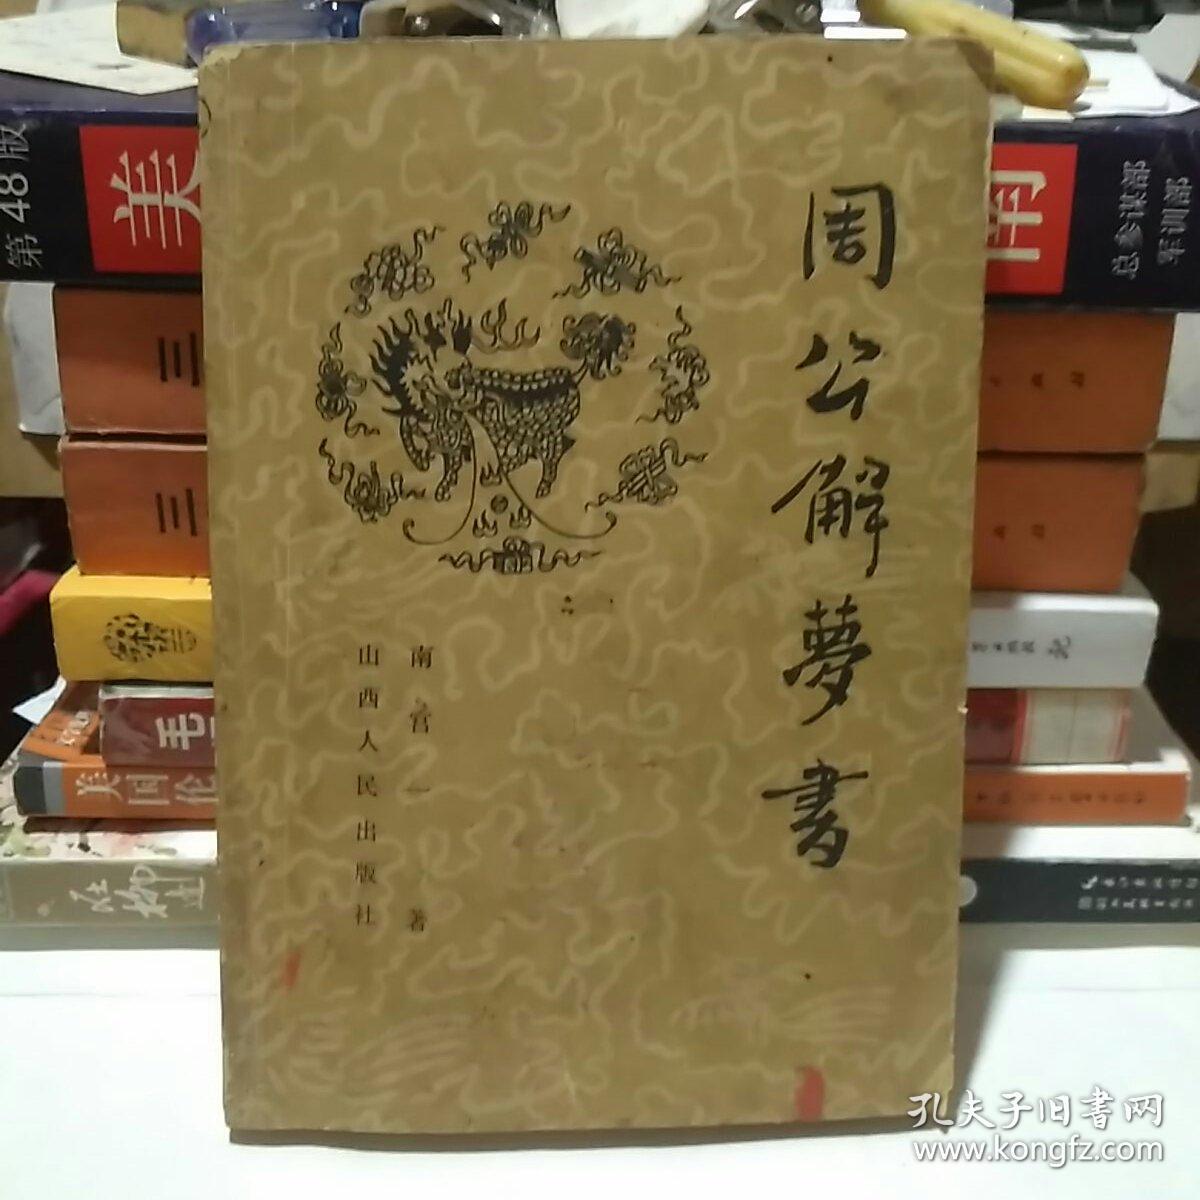 周公解夢書
南宫一 著
山西人民出版社
第48版
美
南
总参谋部
军训部
三
三
毛
美国伦
孔夫子旧書网
www.kongfz.com